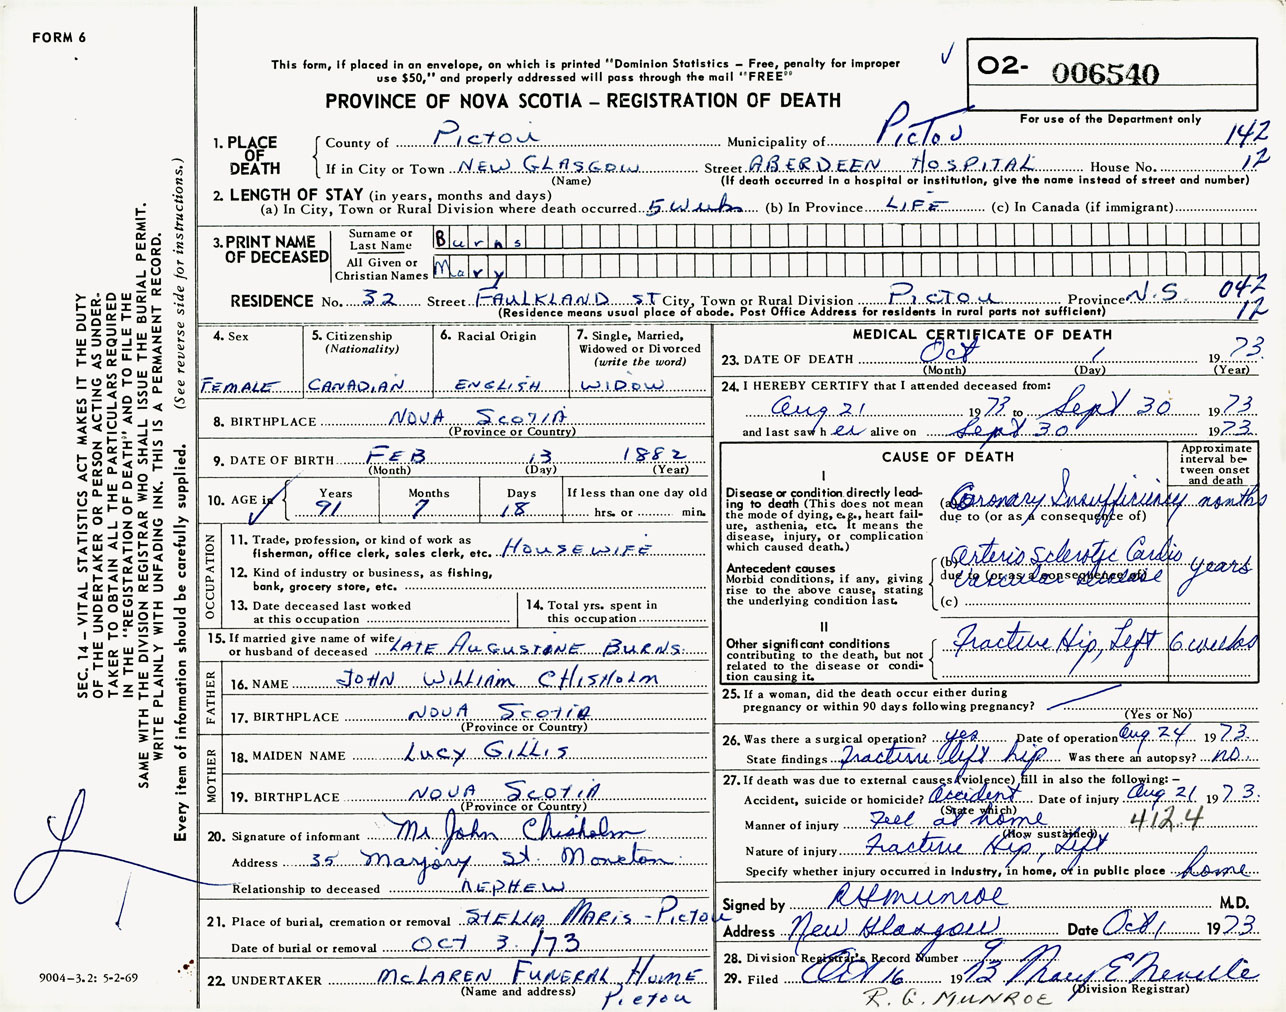 FORM 6
This form, if placed in an envelope, on which is printed "Dominion Statistics – Free, penalty for improper
use $50," and properly addressed will pass through the mail "FREE"
PROVINCE OF NOVA SCOTIA – REGISTRATION OF DEATH
O2- 006540
For use of the Department only
142
12
1. PLACE OF DEATH
County of Pictou Municipality of Pictou
If in City or Town NEW GLASGOW Street ABERDEEN HOSPITAL House No.
(Name) (If death occurred in a hospital or institution, give the name instead of street and number)
2. LENGTH OF STAY (in years, months and days)
(a) In City, Town or Rural Division where death occurred 5 Wks (b) In Province LIFE (c) In Canada (if immigrant)
3. PRINT NAME OF DECEASED
Surname or Last Name Burns
All Given or Christian Names Mary
RESIDENCE No. 32 Street FAULKLAND ST City, Town or Rural Division PICTOU Province N.S. 042
12
(Residence means usual place of abode. Post Office Address for residents in rural parts not sufficient)
4. Sex FEMALE
5. Citizenship (Nationality) CANADIAN
6. Racial Origin ENGLISH
7. Single, Married, Widowed or Divorced (write the word) WIDOW
8. BIRTHPLACE NOVA SCOTIA
(Province or Country)
9. DATE OF BIRTH FEB 13 1882
(Month) (Day) (Year)
10. AGE in Years 91 Months 7 Days 18 If less than one day old
hrs. or min.
OCCUPATION
11. Trade, profession, or kind of work as
fisherman, office clerk, sales clerk, etc. HOUSEWIFE
12. Kind of industry or business, as fishing,
bank, grocery store, etc.
13. Date deceased last worked
at this occupation
14. Total yrs. spent in
this occupation
15. If married give name of wife
or husband of deceased LATE AUGUSTINE BURNS
FATHER
16. NAME JOHN WILLIAM CHISHOLM
17. BIRTHPLACE NOVA SCOTIA
(Province or Country)
MOTHER
18. MAIDEN NAME LUCY GILLIS
19. BIRTHPLACE NOVA SCOTIA
(Province or Country)
20. Signature of informant Mr John Chisholm
Address 35 Marjory St. Moncton
Relationship to deceased NEPHEW
21. Place of burial, cremation or removal STELLA MARIS - PICTOU
Date of burial or removal OCT 3/73
22. UNDERTAKER McLAREN FUNERAL HOME
(Name and address) Pictou
MEDICAL CERTIFICATE OF DEATH
23. DATE OF DEATH Oct 1 1973
(Month) (Day) (Year)
24. I HEREBY CERTIFY that I attended deceased from:
Aug 21 1973 to Sept 30 1973
and last saw her alive on Sept 30 1973
CAUSE OF DEATH
Approximate interval between onset and death
I
Disease or condition directly leading
to death (This does not mean
the mode of dying, e.g., heart failure,
asthenia, etc. It means the
disease, injury, or complication
which caused death.)
(a) Coronary Insufficiency months
due to (or as a consequence of)
Antecedent causes
Morbid conditions, if any, giving
rise to the above cause, stating
the underlying condition last.
(b) Arterio Sclerotic Cardio
Vascular disease years
due to (or as a consequence of)
(c)
II
Other significant conditions
contributing to the death, but not
related to the disease or condition
causing it.
Fracture Hip, Left 6 weeks
25. If a woman, did the death occur either during
pregnancy or within 90 days following pregnancy?
(Yes or No)
26. Was there a surgical operation? yes Date of operation Aug 24 1973.
State findings Fracture left hip Was there an autopsy? no.
27. If death was due to external causes (violence) fill in also the following: –
Accident, suicide or homicide? Accident Date of injury Aug 21 1973.
(State which)
Manner of injury Feel at home 412.4
(How sustained)
Nature of injury Fracture Hip, Left
Specify whether injury occurred in industry, in home, or in public place home
Signed by RGMunroe M.D.
Address New Glasgow Date Oct 1 1973
28. Division Registrar's Record Number
29. Filed Oct 16 1973 Mary E Neville
(Division Registrar)
R. G. MUNROE
SEC. 14 – VITAL STATISTICS ACT MAKES IT THE DUTY
OF THE UNDERTAKER OR PERSON ACTING AS UNDERTAKER
TO OBTAIN ALL THE PARTICULARS REQUIRED
IN THE "REGISTRATION OF DEATH" AND TO FILE THE
SAME WITH THE DIVISION REGISTRAR WHO SHALL ISSUE THE BURIAL PERMIT.
WRITE PLAINLY WITH UNFADING INK. THIS IS A PERMANENT RECORD.
Every item of information should be carefully supplied. (See reverse side for instructions.)
9004-3.2: 5-2-69